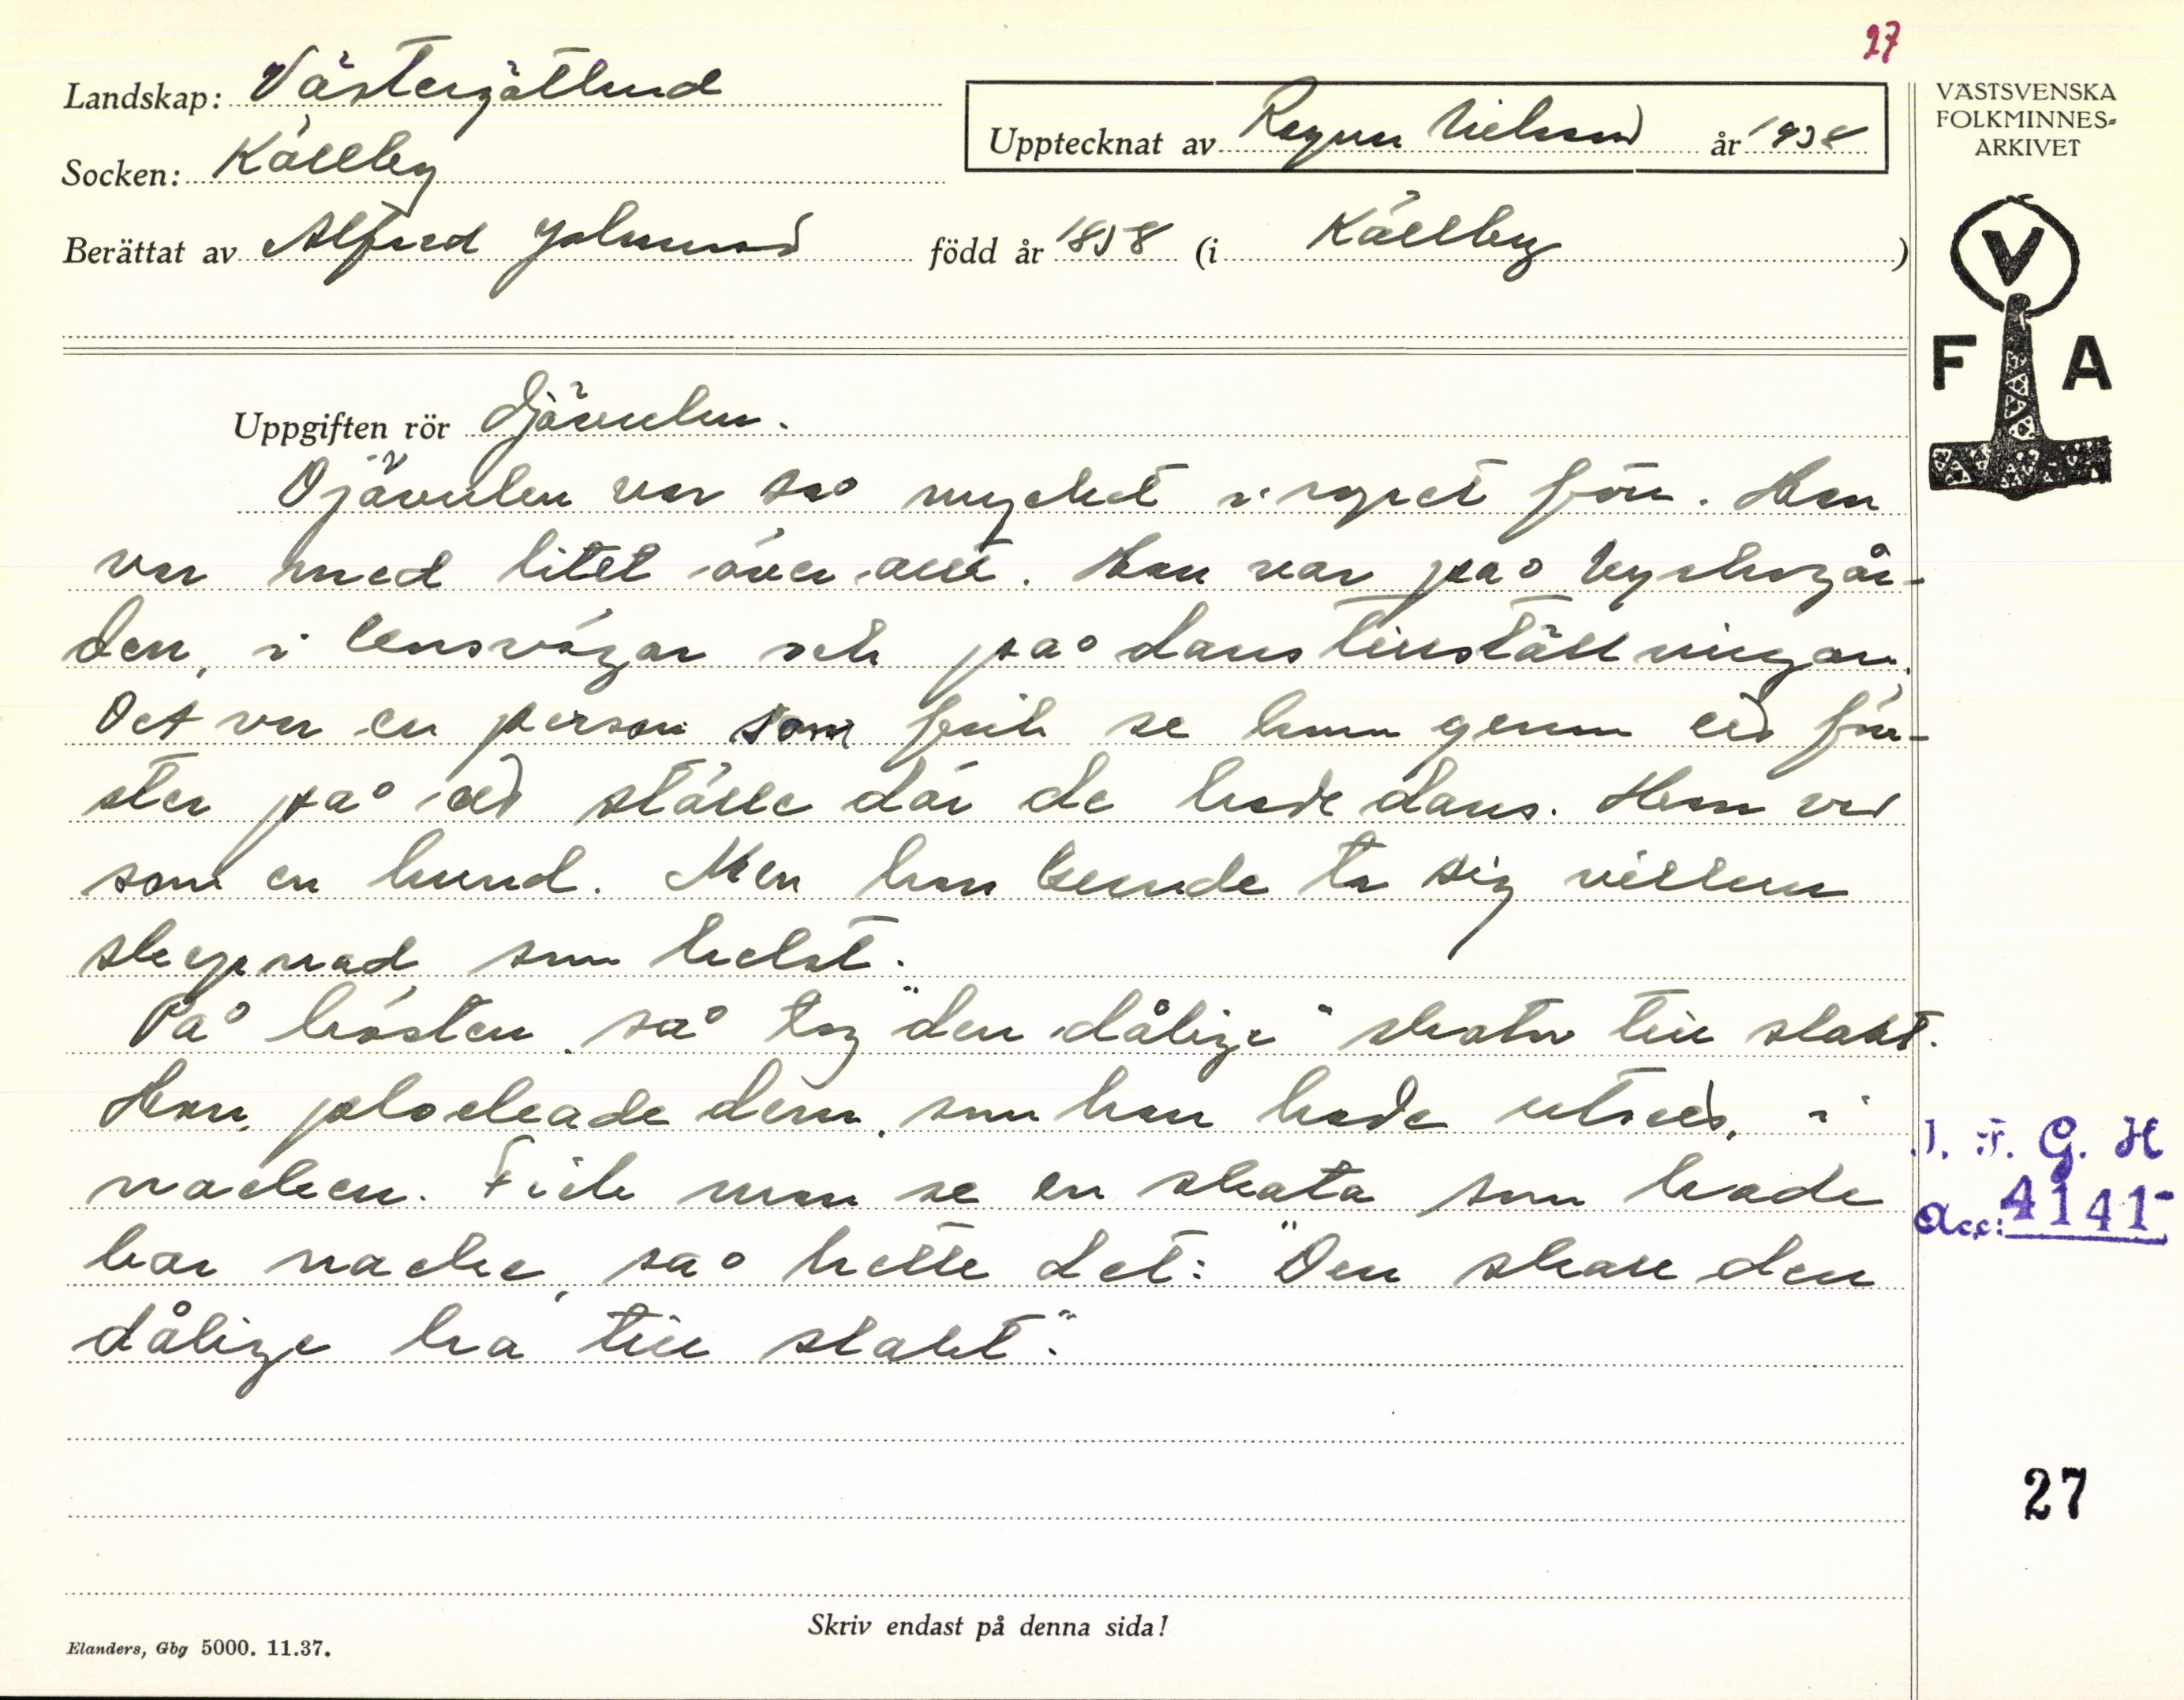 27
Landskap: Västergötland
Socken: Källby
Upptecknat av Ragnar Nilsson år 1938
Berättat av Alfred Johansson född år 1858 (i Källby)
VÄSTSVENSKA
FOLKMINNES-
ARKIVET
V
F A
Uppgiften rör djävulen.
Djävulen var så mycket i ropet förr. Han
var med litet över allt. Han var på kyrkogår-
den, i korsvägar och på danstillställningar.
Det var en person som fick se honom genom ett fön-
ster på ett ställe där de hade dans. Han var
som en hund. Men han kunde ta sig vilken
skepnad som helst.
På hösten så tog "den dålige" skator till slakt.
Han plockade dem, som han hade utsett, i
nacken. Fick man se en skata som hade
bar nacke, så hette det: "Den skall den
dålige ha till slakt".
I. F. G. H
Acc: 4141
27
Skriv endast på denna sida!
Elanders, Gbg 5000. 11.37.